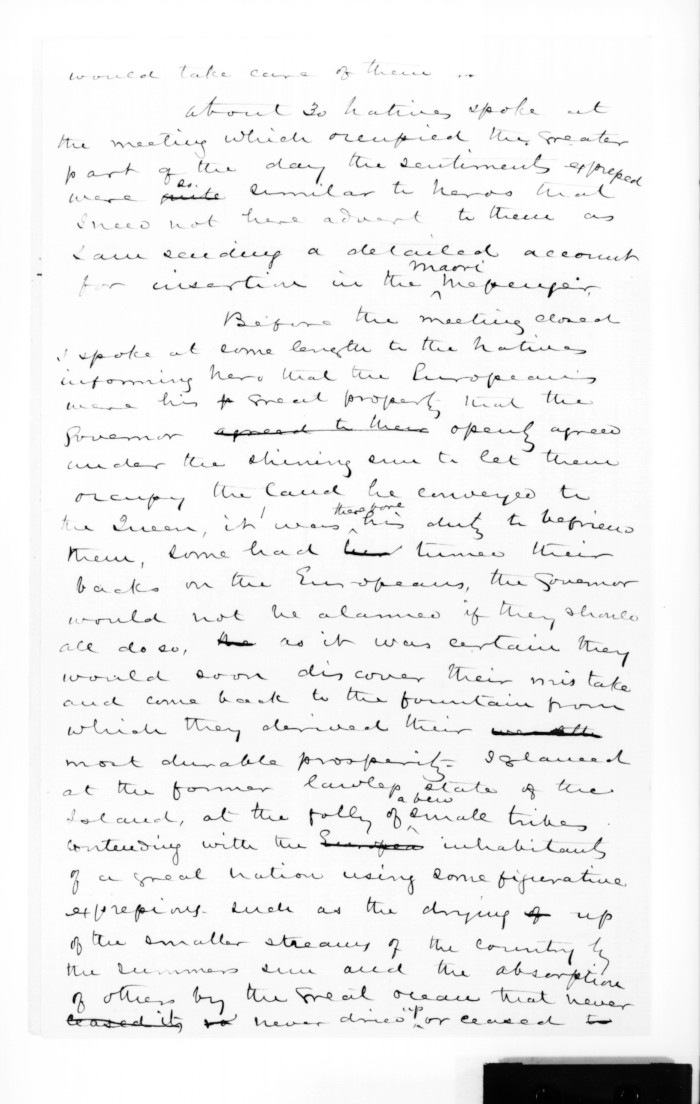 would take care of them ..
About 30 Natives spoke at
the meeting which occupied the greater
part of the day the sentiments expressed
were quite so similar to heros that
I need not here advert to them as
I am sending a detailed account
for insertion in the Maori Messenger.
Before the meeting closed
I spoke at some length to the Natives
informing hero that the Europeans
were his great property that the
Governor agreed to their openly agreed
under the shining sun to let them
occupy the land he conveyed to
the Queen, it was therefore his duty to befriend
them, some had turned their
backs on the Europeans, the Governor
would not be alarmed if they should
all do so, the as it was certain they
would soon discover their mistake
and come back to the fountain from
which they derived their wealth
most durable prosperity. I glanced
at the former lawless state of the
Island, at the folly of a few small tribes
contending with the European inhabitants
of a great nation using some figurative
expressions such as the drying of up
of the smaller streams of the country by
the summers sun and the absorption
of others by the great ocean that never
ceased its never dried up or ceased to